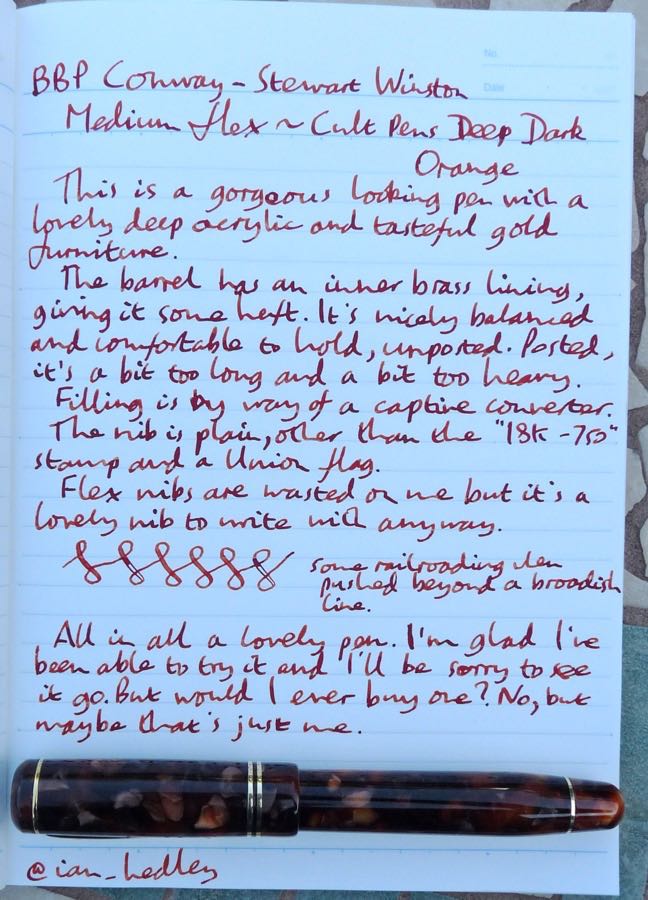 No.
Date
BBP Conway-Stewart Winston
Medium flex ~ Cult Pens Deep Dark
Orange
This is a gorgeous looking pen with a
lovely deep acrylic and tasteful gold
furniture.
The barrel has an inner brass lining,
giving it some heft. It's nicely balanced
and comfortable to hold, unposted. Posted,
it's a bit too long and a bit too heavy.
Filling is by way of a captive converter.
The nib is plain, other than the "18K -750"
stamp and a Union flag.
Flex nibs are wasted on me but it's a
lovely nib to write with anyway.
some railroading when
pushed beyond a broadish
line.
All in all a lovely pen. I'm glad I've
been able to try it and I'll be sorry to see
it go. But would I ever buy one? No, but
maybe that's just me.
@ian_hedley